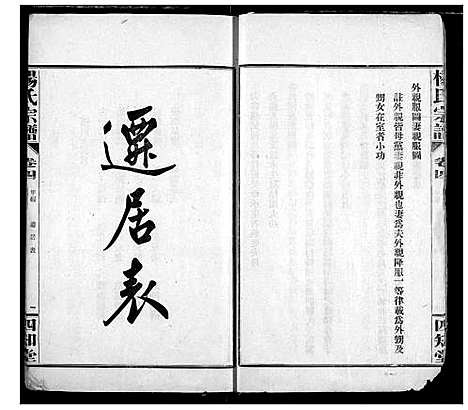 楊氏宗譜
卷四
四知堂
外親服圖妻親服圖
註外親皆母黨妻親非外親也妻為夫外親降服一等律載為外甥及
甥女在室者小功
遷居表
楊氏宗譜
卷四
遷居表
一
四知堂